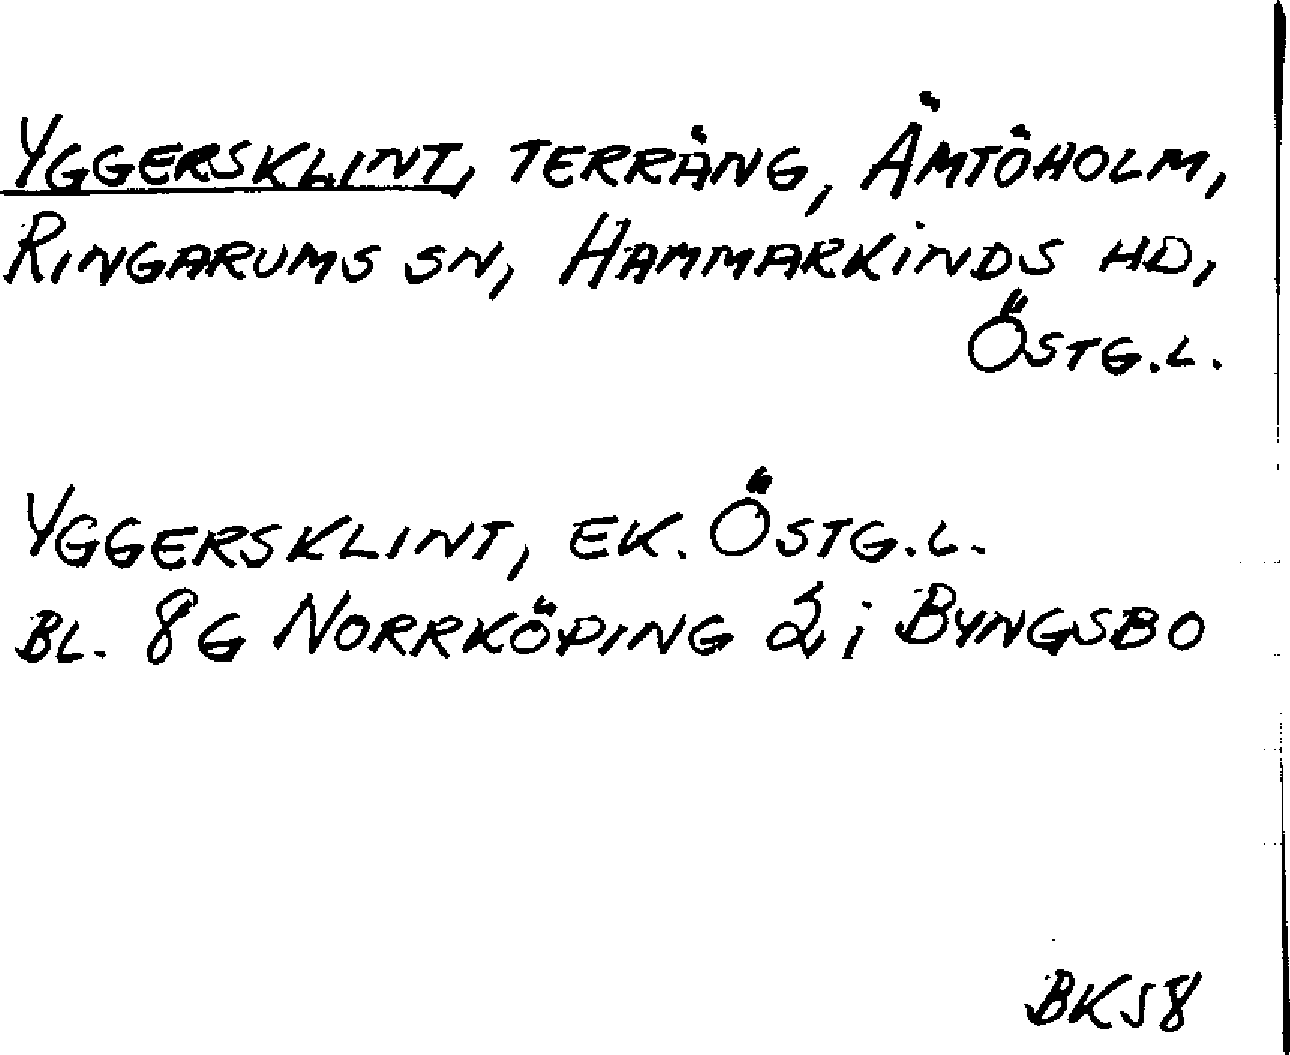 YGGERSKLINT, TERRÄNG, ÄMTÖHOLM,
RINGARUMS SN, HAMMARKINDS HD,
ÖSTG.L.
YGGERSKLINT, EK. ÖSTG.L.
BL. 8G NORRKÖPING 2i BYNGSBO
BK58